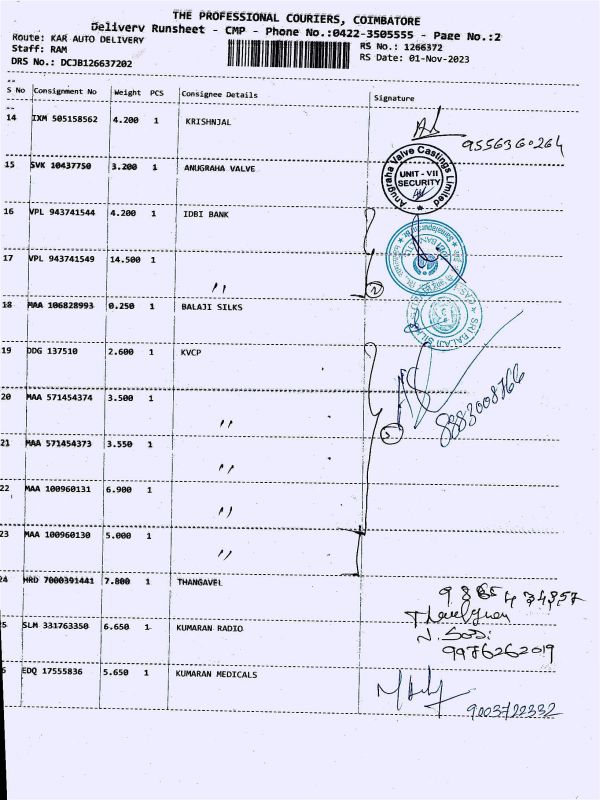 THE PROFESSIONAL COURIERS, COIMBATORE
Delivery Runsheet - CMP - Phone No.:0422-3505555 - Page No.:2
Route: KAR AUTO DELIVERY
Staff: RAM
DRS No.: DCJB126637202
RS No.: 1266372
RS Date: 01-Nov-2023
S No Consignment No Weight PCS Consignee Details Signature
14 IXM 505158562 4.200 1 KRISHNJAL
9556360264
15 SVK 10437750 3.200 1 ANUGRAHA VALVE
Anugraha Valve Castings Limited
UNIT - VII
SECURITY
16 VPL 943741544 4.200 1 IDBI BANK
17 VPL 943741549 14.500 1
〃
2
18 MAA 106828993 0.250 1 BALAJI SILKS
SRI BALAJI SILK
19 DDG 137510 2.600 1 KVCP
20 MAA 571454374 3.500 1
〃
8883008766
5
21 MAA 571454373 3.550 1
〃
22 MAA 100960131 6.900 1
〃
23 MAA 100960130 5.000 1
〃
24 HRD 7000391441 7.800 1 THANGAVEL
5 SLM 331763350 6.650 1 KUMARAN RADIO
9976262019
6 EDQ 17555836 5.650 1 KUMARAN MEDICALS
9003722332